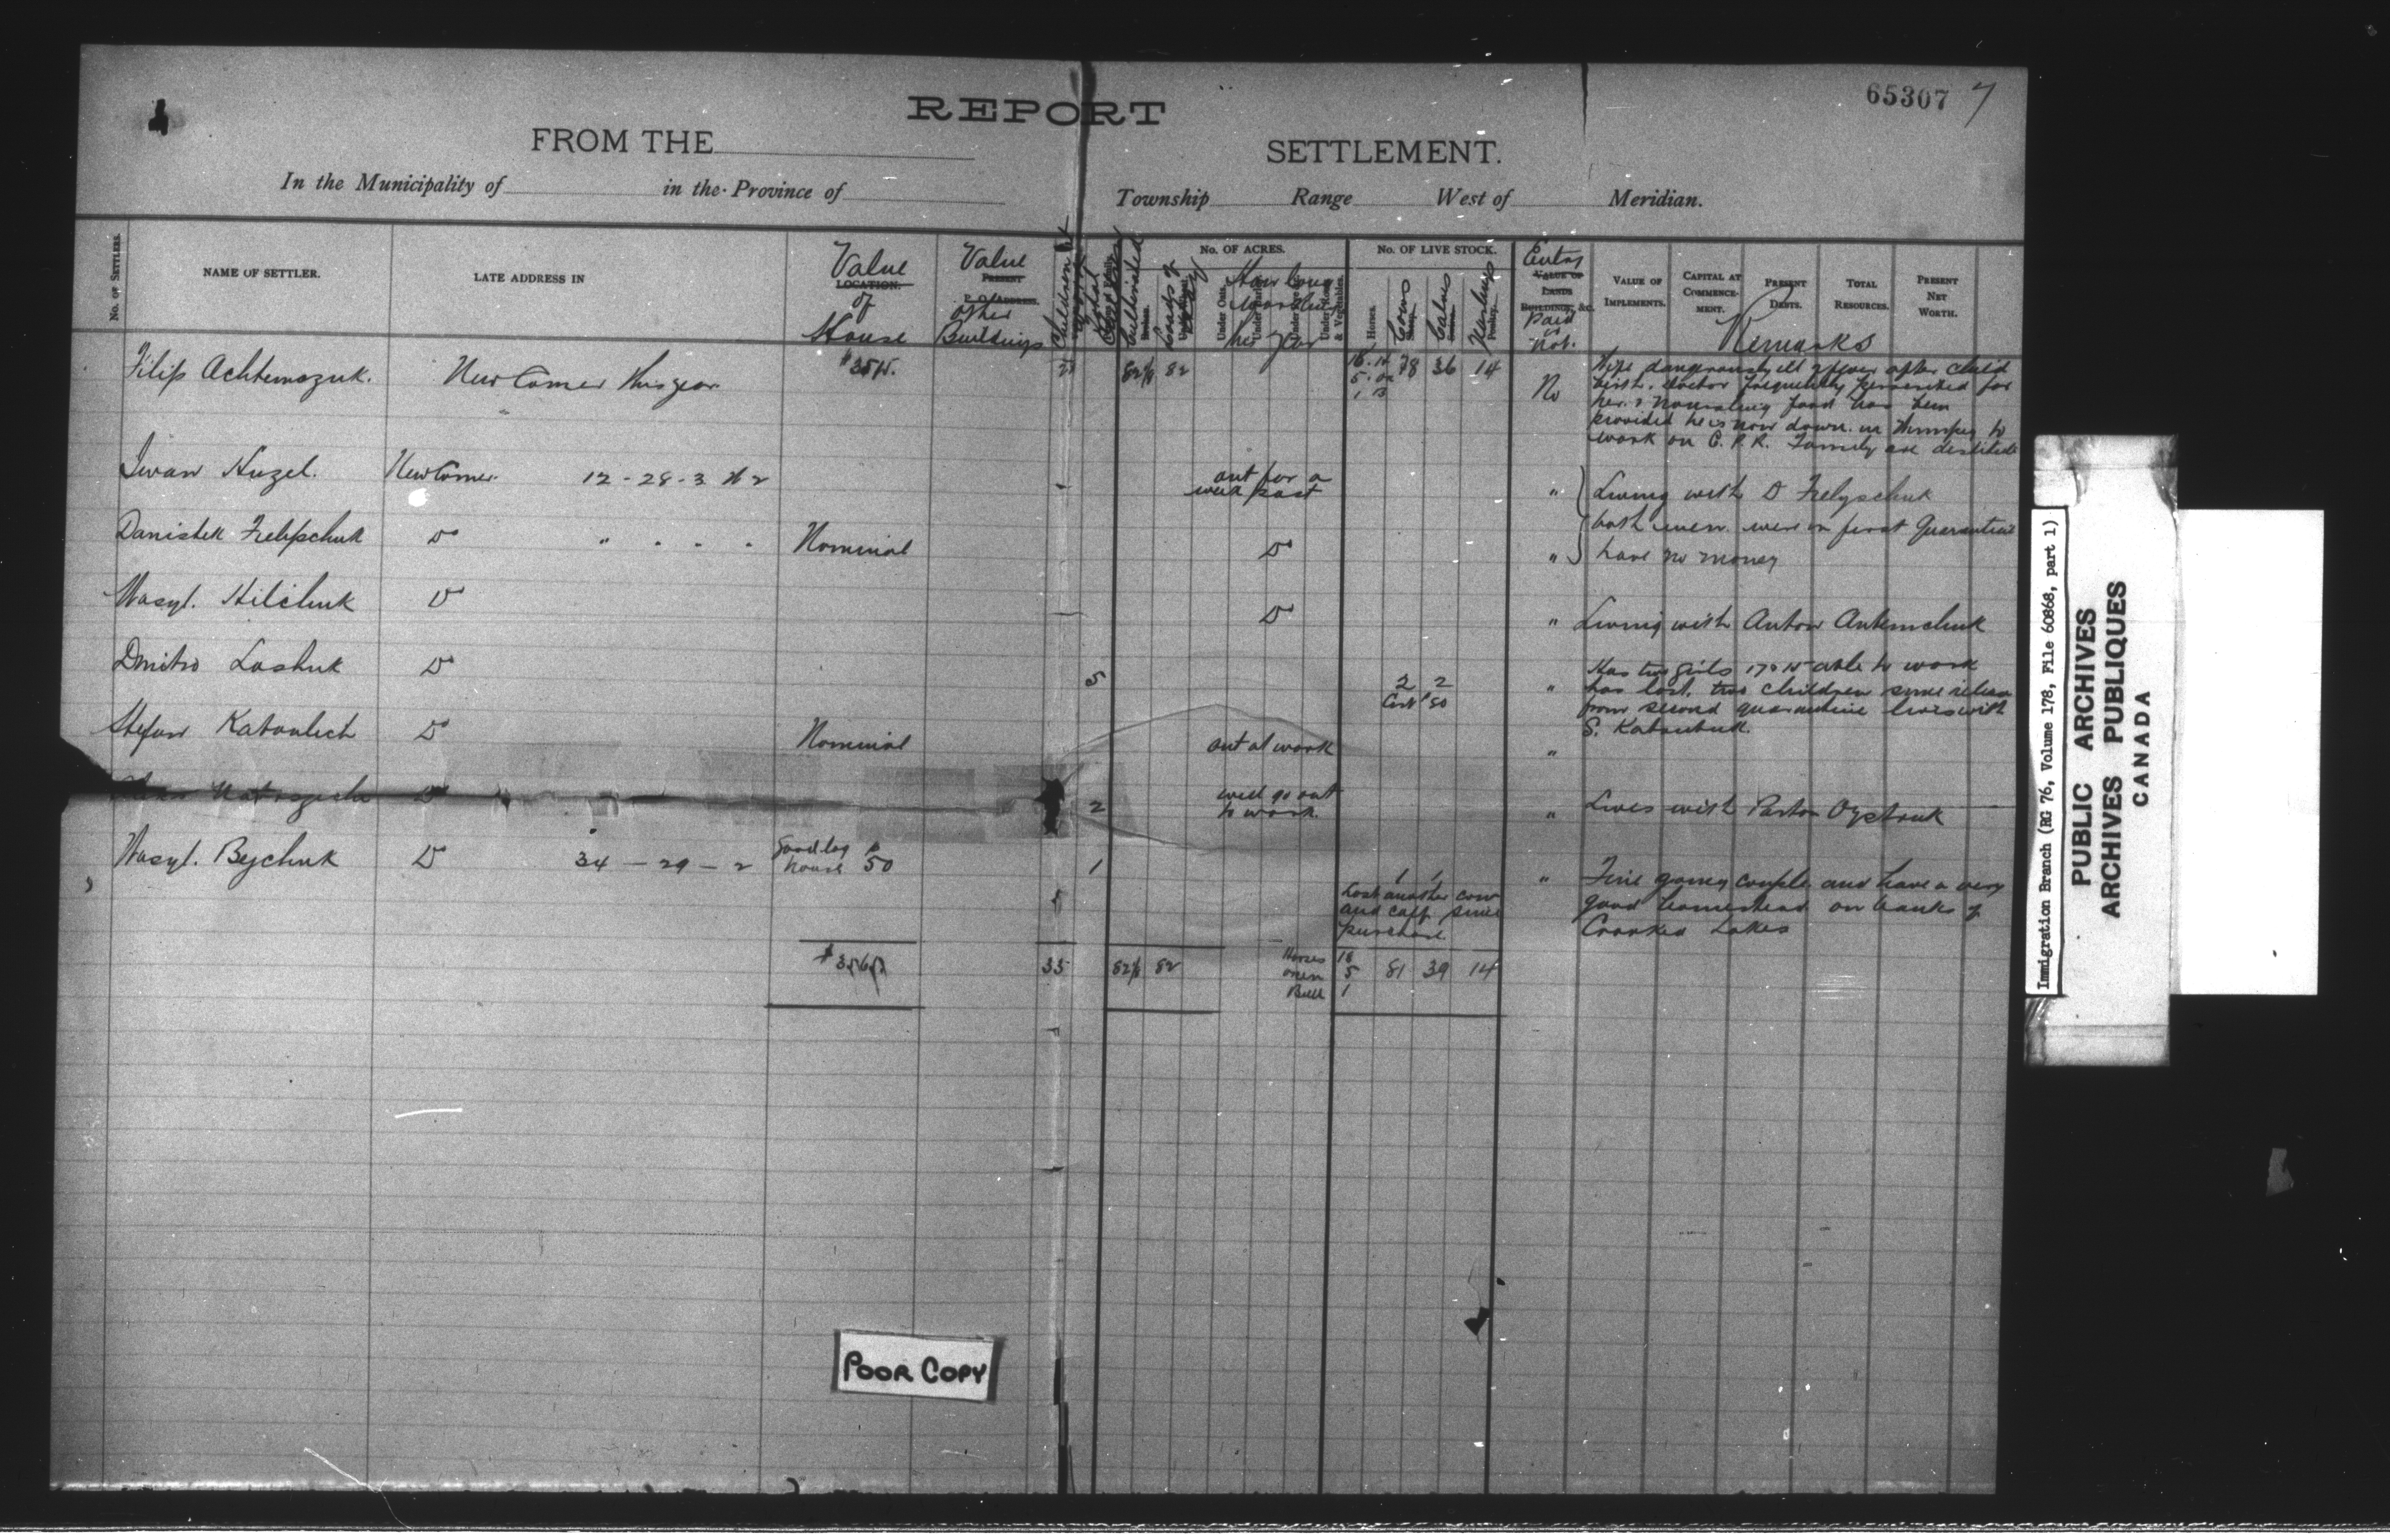 65307 7
REPORT
FROM THE SETTLEMENT.
In the Municipality of in the Province of Township Range West of Meridian.
No. OF SETTLERS.
NAME OF SETTLER.
LATE ADDRESS IN
Value
LOCATION.
of
House
Value
PRESENT
P. O. ADDRESS.
other
Buildings
Children
Cultivated
No. OF ACRES.
Under Oats.
How long
Working
his year
No. OF LIVE STOCK.
Horses.
Cows
Calves
Yearlings
Poultry.
Entry
VALUE OF
LANDS
BUILDINGS, &c.
Paid
or
not.
VALUE OF
IMPLEMENTS.
CAPITAL AT
COMMENCE-
MENT.
PRESENT
DEBTS.
TOTAL
RESOURCES.
PRESENT
NET
WORTH.
Remarks
Filip Achtemozuk. New Comer this year 82½ 82 78 36 14 No
5 ox
1 B
Wife dangerously ill of fever after child
birth. doctor frequently prescribed for
her & nourishing food has been
provided he is now down in Winnipeg to
work on C. P. R. Family are destitute
Iwan Huzel. New Comer. 12 - 28 - 3 W 2 out for a
week past " Living with D Felypchuk
Danistek Felipchuk Do " Nominal Do " both men were in first Quarantine
have no money
Wasyl. Hilchuk Do Do " Living with Anton Artemchuk
Dmitro Lashuk Do 5 2 2
Cost $50 "
Has two girls 17 & 15 able to work
has lost two children since release
from second quarantine lives with
S. Katouluk.
Stefan Do Nominal out at work "
Do 2 will go out
to work. " Lives with Parton
Wasyl. Bychuk Do 34 - 29 - 2 Good log
house $50 1 1 1 "
Lost another cow
and calf since
purchase.
Fine young couple and have a very
good homestead on banks of
Crooked Lakes
33 82½ 82 Horses 18 81 39 14
oxen 5
Bull 1
POOR COPY
Immigration Branch (RG 76, Volume 178, File 60868, part 1)
PUBLIC ARCHIVES
ARCHIVES PUBLIQUES
CANADA